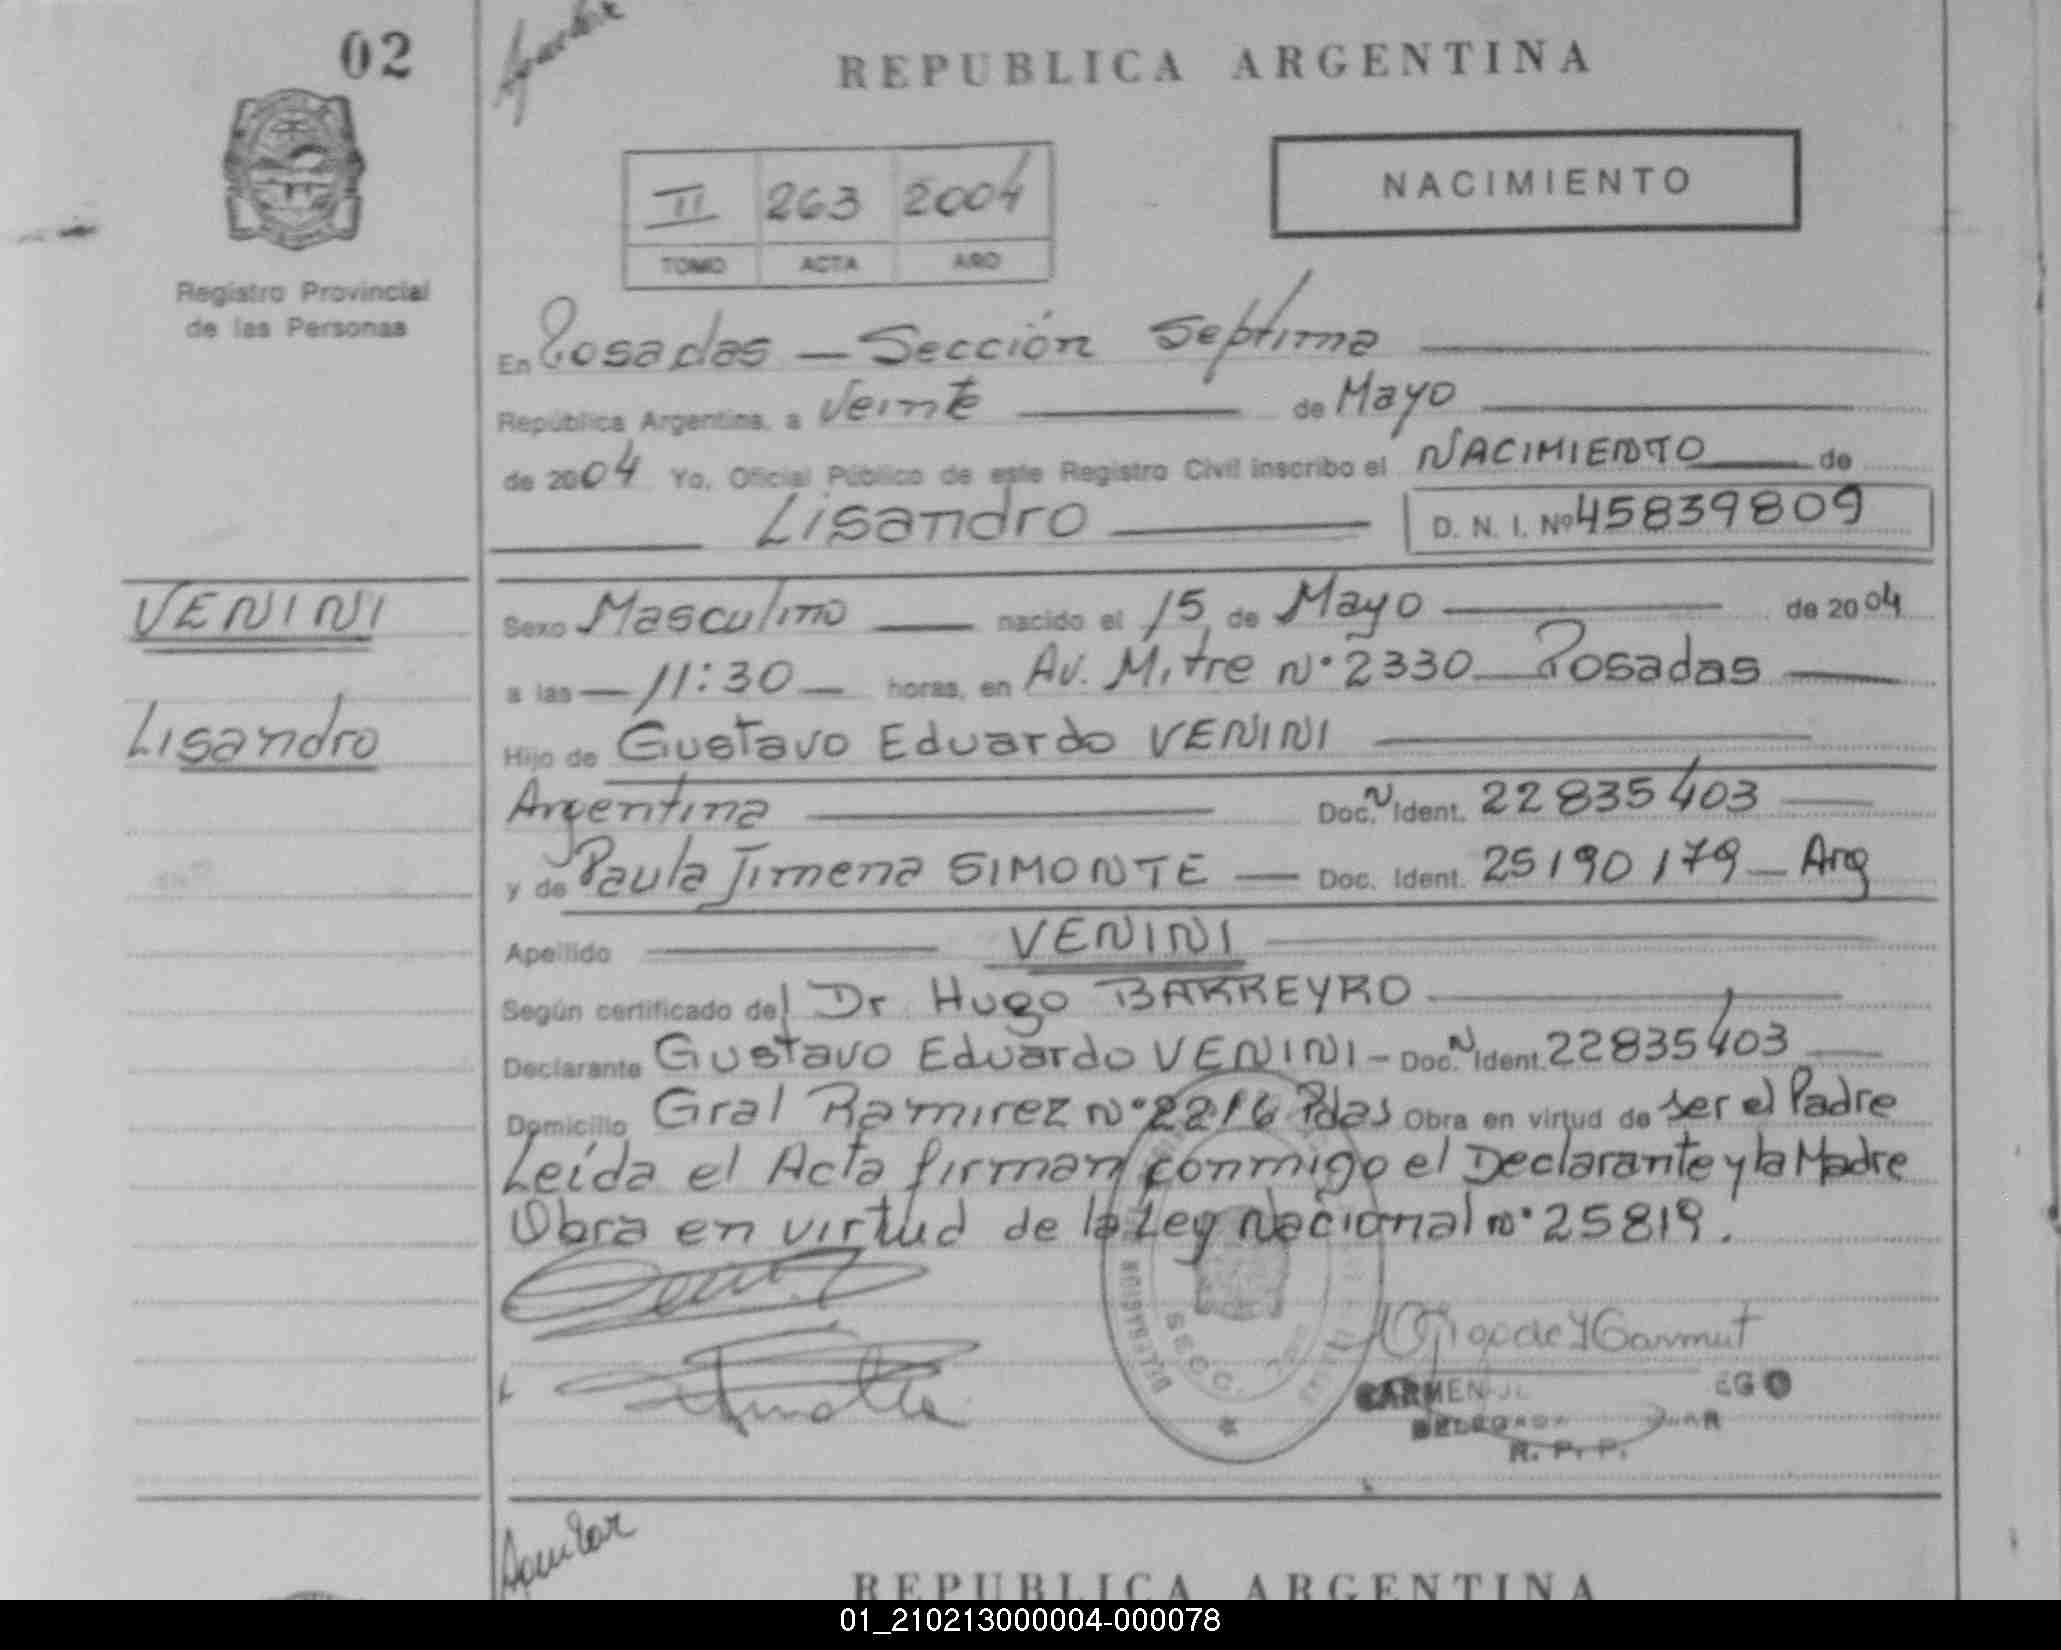 02
REPUBLICA ARGENTINA
NACIMIENTO
II 263 2004
TOMO ACTA AÑO
Registro Provincial
de las Personas
En Posadas - Sección Septima
República Argentina, a Veinte de Mayo
de 2004 Yo, Oficial Público de este Registro Civil inscribo el NACIMIENTO de
Lisandro D. N. I. Nº 45839809
VENINI
Lisandro
Sexo Masculino nacido el 15 de Mayo de 2004
a las - 11:30 - horas, en Av. Mitre N° 2330 Posadas
Hijo de Gustavo Eduardo VENINI
Argentina Doc. N Ident. 22835403
y de Paula Jimena SIMONTE - Doc. Ident. 25190179 - Arg
Apellido VENINI
Según certificado del Dr Hugo BARREYRO
Declarante Gustavo Eduardo VENINI - Doc. N Ident. 22835403
Domicilio Gral Ramirez N° 2216 Pdas Obra en virtud de ser el Padre
Leída el Acta firman conmigo el Declarante y la Madre
Obra en virtud de la Ley Nacional N° 25819.
SECC.
CARMEN
R. P. P.
Aguilar
REPUBLICA ARGENTINA
01_210213000004-000078